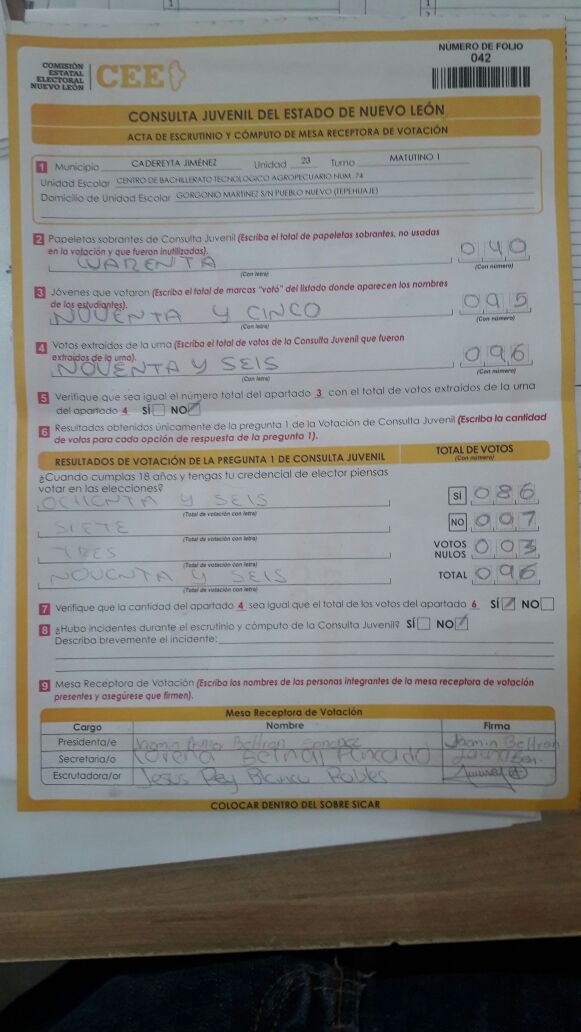 NÚMERO DE FOLIO
042
COMISIÓN
ESTATAL
ELECTORAL
NUEVO LEÓN
CEE
CONSULTA JUVENIL DEL ESTADO DE NUEVO LEÓN
ACTA DE ESCRUTINIO Y CÓMPUTO DE MESA RECEPTORA DE VOTACIÓN
1 Municipio CADEREYTA JIMÉNEZ Unidad 23 Turno MATUTINO 1
Unidad Escolar CENTRO DE BACHILLERATO TECNOLOGICO AGROPECUARIO NUM. 74
Domicilio de Unidad Escolar GORGONIO MARTINEZ S/N PUEBLO NUEVO (TEPEHUAJE)
2 Papeletas sobrantes de Consulta Juvenil (Escriba el total de papeletas sobrantes, no usadas
en la votación y que fueron inutilizadas).
CUARENTA 040
(Con letra) (Con número)
3 Jóvenes que votaron (Escriba el total de marcas "votó" del listado donde aparecen los nombres
de los estudiantes).
NOVENTA Y CINCO 095
(Con letra) (Con número)
4 Votos extraídos de la urna (Escriba el total de votos de la Consulta Juvenil que fueron
extraídos de la urna).
NOVENTA Y SEIS 096
(Con letra) (Con número)
5 Verifique que sea igual el número total del apartado 3 con el total de votos extraídos de la urna
del apartado 4 SÍ NO
6 Resultados obtenidos únicamente de la pregunta 1 de la Votación de Consulta Juvenil (Escriba la cantidad
de votos para cada opción de respuesta de la pregunta 1).
RESULTADOS DE VOTACIÓN DE LA PREGUNTA 1 DE CONSULTA JUVENIL TOTAL DE VOTOS
(Con número)
¿Cuando cumplas 18 años y tengas tu credencial de elector piensas
votar en las elecciones?
OCHENTA Y SEIS SÍ 086
(Total de votación con letra)
SIETE NO 007
(Total de votación con letra)
TRES VOTOS NULOS 003
(Total de votación con letra)
NOVENTA Y SEIS TOTAL 096
(Total de votación con letra)
7 Verifique que la cantidad del apartado 4 sea igual que el total de los votos del apartado 6 SÍ NO
8 ¿Hubo incidentes durante el escrutinio y cómputo de la Consulta Juvenil? SÍ NO
Describa brevemente el incidente:
9 Mesa Receptora de Votación (Escriba los nombres de las personas integrantes de la mesa receptora de votación
presentes y asegúrese que firmen).
Mesa Receptora de Votación
Cargo Nombre Firma
Presidenta/e Beltran Sanchez Jazmin Beltran
Secretaria/o Lorena
Escrutadora/or Jesus Rey Blanco Robles
COLOCAR DENTRO DEL SOBRE SICAR